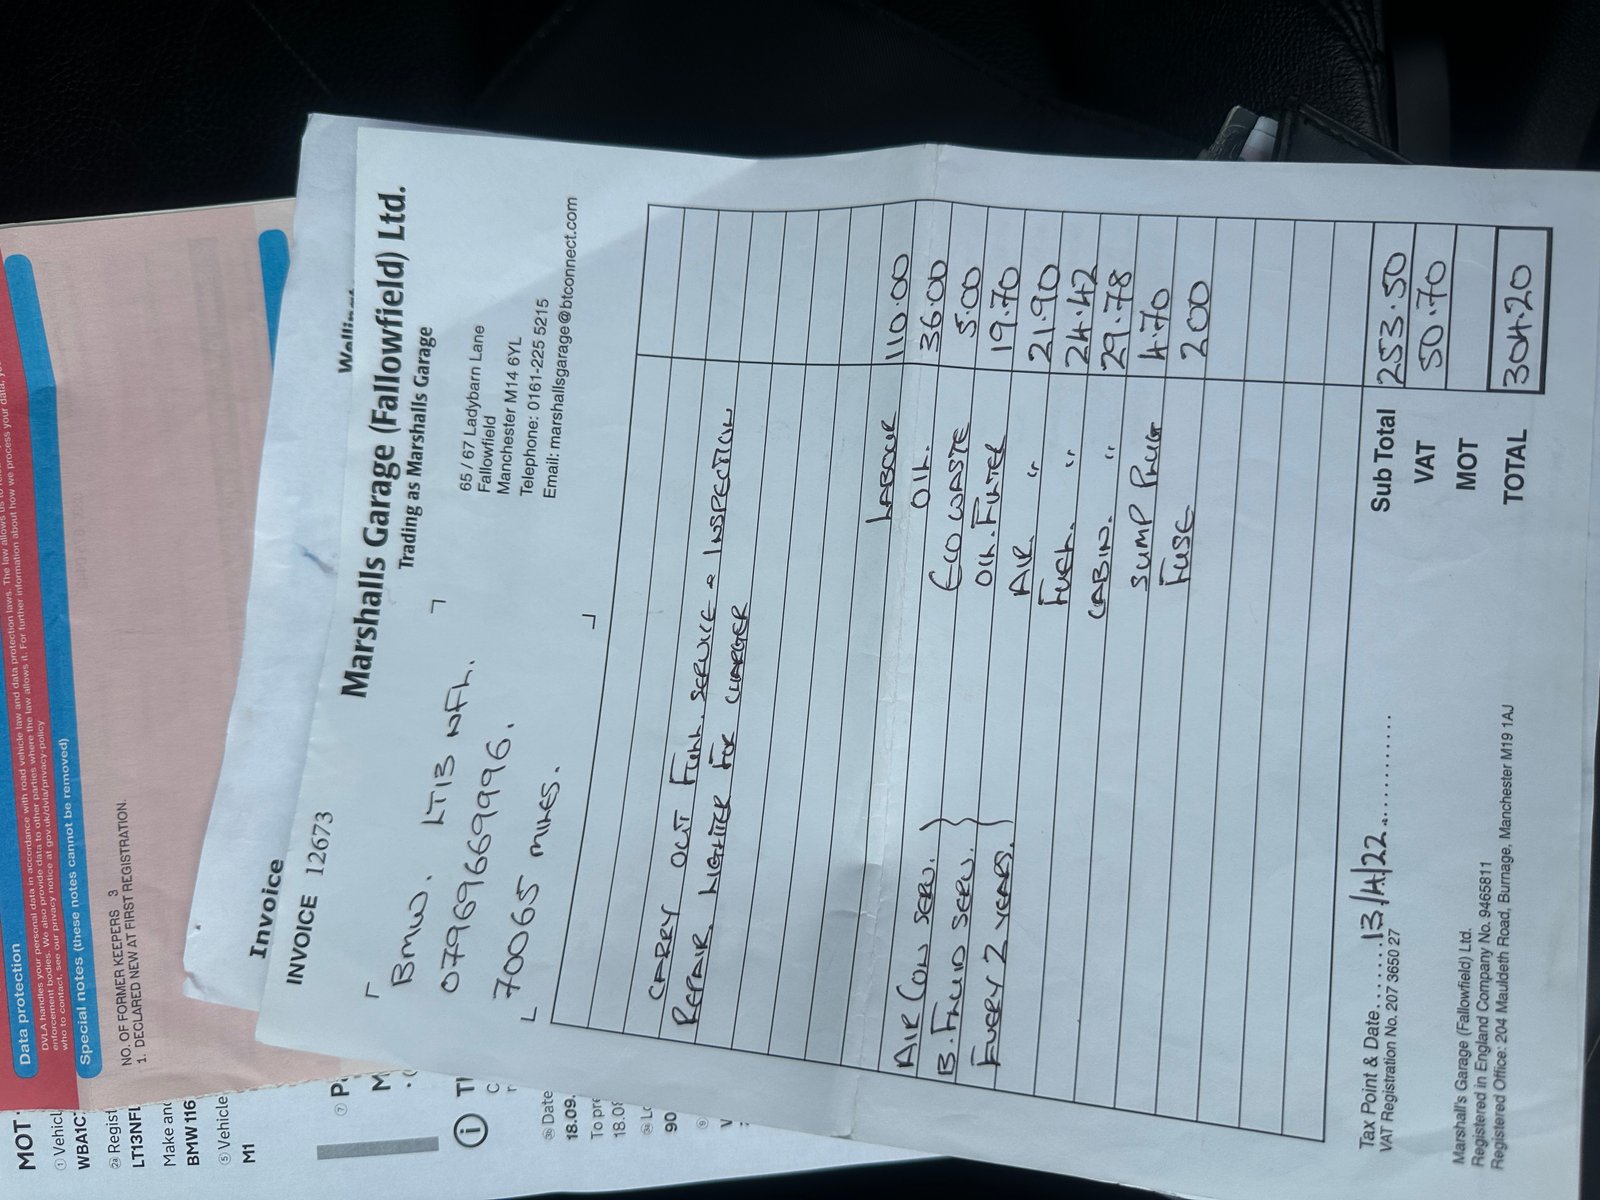 Data protection
DVLA handles your personal data in accordance with road vehicle law and data protection laws. The law allows us to
enforcement bodies. We also provide data to other parties where the law allows it. For further information about how we process your data,
who to contact, see our privacy notice at gov.uk/dvla/privacy-policy
Special notes (these notes cannot be removed)
NO. OF FORMER KEEPERS 3
1. DECLARED NEW AT FIRST REGISTRATION.
MOT
① Vehicl
WBA1C
2a Regist
LT13NFL
Make and
BMW 116
⑤ Vehicle
M1
⑦
3b Date
18.09.
To pre
18.0
90
Invoice
INVOICE 12673
Marshalls Garage (Fallowfield) Ltd.
Trading as Marshalls Garage
65 / 67 Ladybarn Lane
Fallowfield
Manchester M14 6YL
Telephone: 0161-225 5215
Email: marshallsgarage@btconnect.com
BMW. LT13 NFL.
07969669996.
70065 MILES.
CARRY OUT FULL SERVICE & INSPECTION
REPAIR LIGHTER FOR CHARGER
LABOUR 110.00
AIR CON SERV. } OIL. 36.00
B. FLUID SERV. } ECO WASTE 5.00
EVERY 2 YEARS. OIL. FILTER 19.70
AIR. " 21.90
FUEL. " 24.42
CABIN. " 29.78
SUMP PLUG 4.70
FUSE 2.00
Sub Total 253.50
VAT 50.70
MOT
TOTAL 304.20
Tax Point & Date......13/4/22............
VAT Registration No. 207 3650 27
Marshall's Garage (Fallowfield) Ltd.
Registered in England Company No. 9465811
Registered Office: 204 Mauldeth Road, Burnage, Manchester M19 1AJ